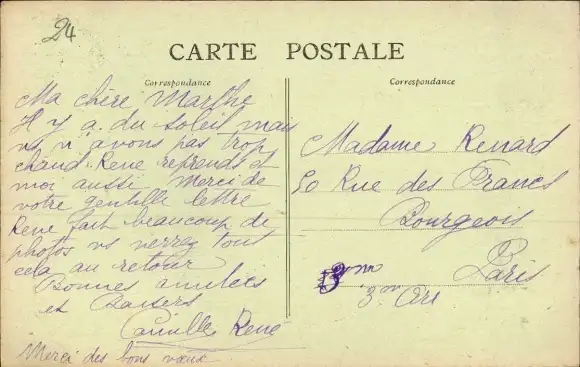 24
CARTE POSTALE
Correspondance
Ma chère Marthe
Il y a du soleil mais
ns n'avons pas trop
chaud. René reprends et
moi aussi. Merci de
votre gentille lettre
René fait beaucoup de
photos vs verrez tout
cela au retour
Bonnes amitiés
et Baisers
Camille René
Merci des bons vœux
Correspondance
Madame Renard
50 Rue des Francs
Bourgeois
Paris
3em Arr